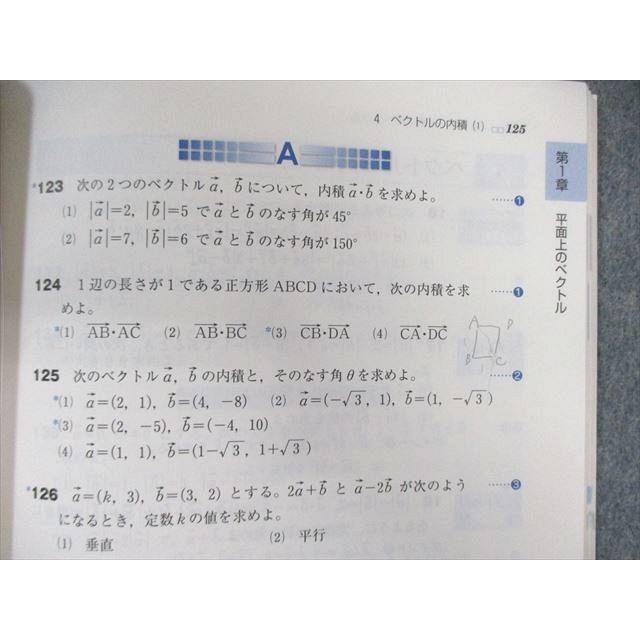 4 ベクトルの内積(1) □□125
第1章 平面上のベクトル
A
*123 次の2つのベクトル a⃗, b⃗ について，内積 a⃗・b⃗ を求めよ。 ……❶
(1) |a⃗|=2, |b⃗|=5 で a⃗ と b⃗ のなす角が 45°
(2) |a⃗|=7, |b⃗|=6 で a⃗ と b⃗ のなす角が 150°
124 1辺の長さが1である正方形 ABCD において，次の内積を求 ……❶
めよ。
*(1) AB⃗・AC⃗ (2) AB⃗・BC⃗ *(3) CB⃗・DA⃗ (4) CA⃗・DC⃗
A D
B C
125 次のベクトル a⃗, b⃗ の内積と，そのなす角 θ を求めよ。 ……❷
*(1) a⃗=(2, 1), b⃗=(4, −8) (2) a⃗=(−√3, 1), b⃗=(1, −√3)
*(3) a⃗=(2, −5), b⃗=(−4, 10)
(4) a⃗=(1, 1), b⃗=(1−√3, 1+√3)
*126 a⃗=(k, 3), b⃗=(3, 2) とする。2a⃗+b⃗ と a⃗−2b⃗ が次のよう ……❸
になるとき，定数 k の値を求めよ。
(1) 垂直 (2) 平行